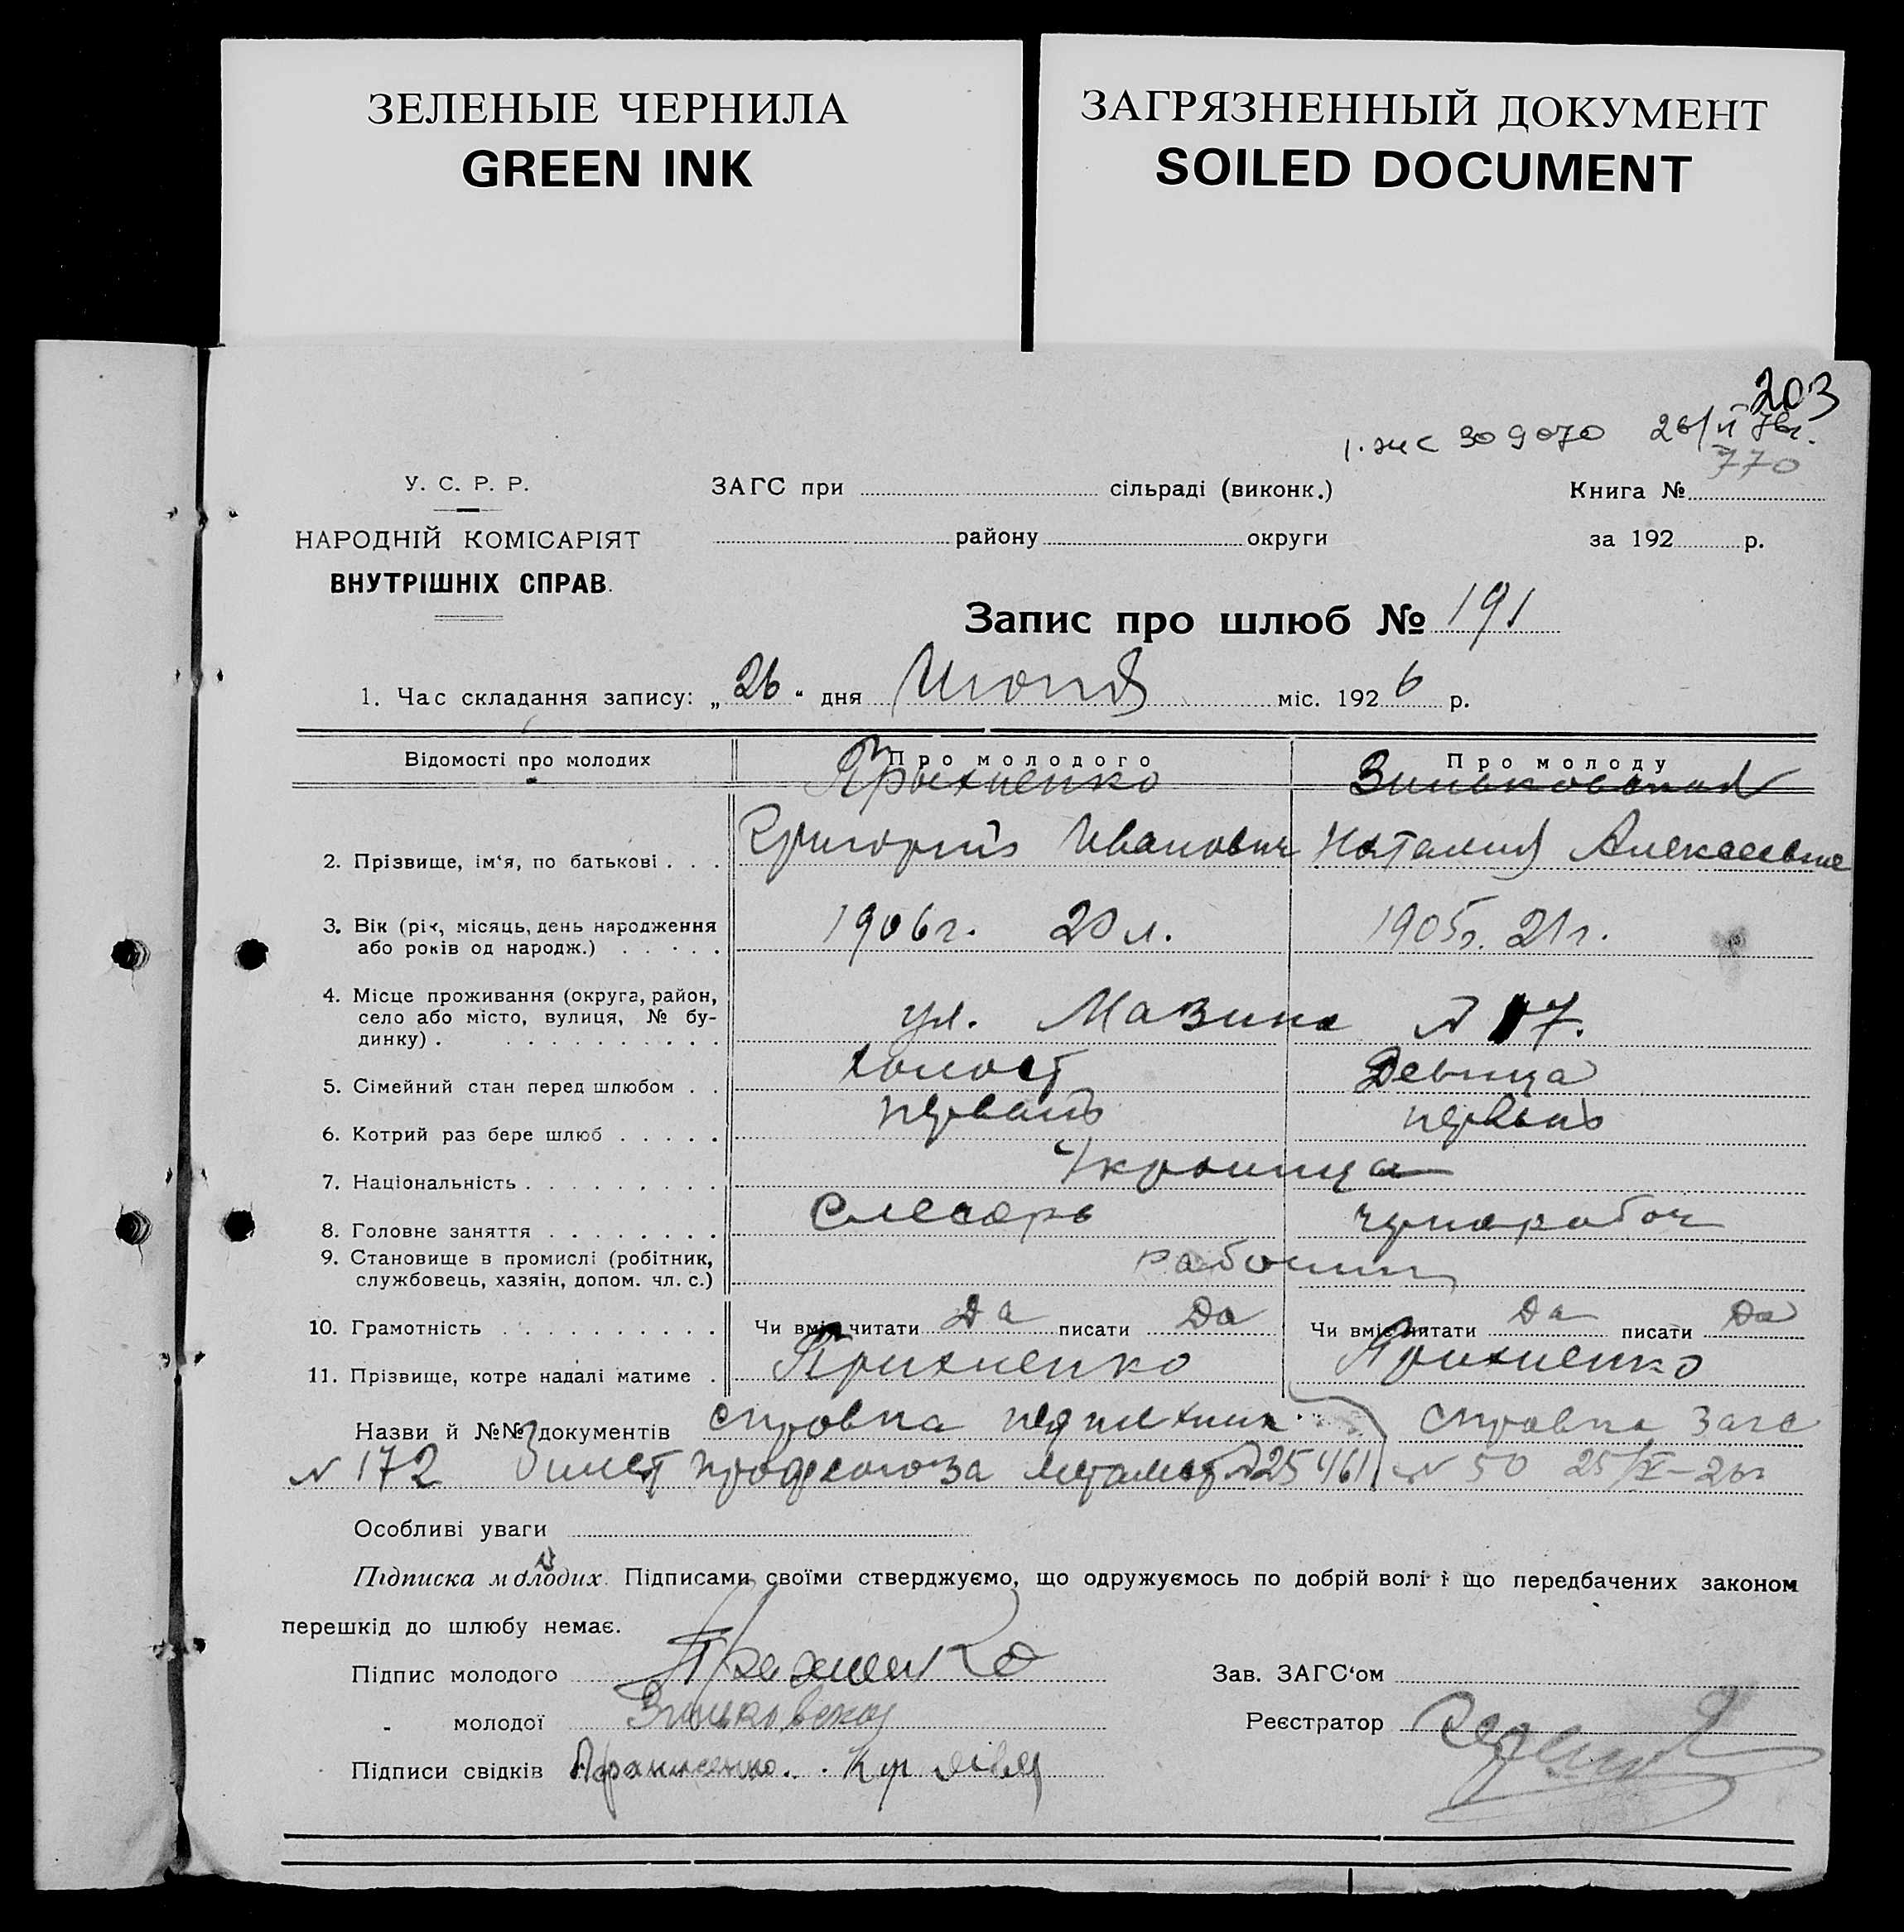 ЗЕЛЕНЫЕ ЧЕРНИЛА
GREEN INK
ЗАГРЯЗНЕННЫЙ ДОКУМЕНТ
SOILED DOCUMENT
203
309070 26/
770
У. С. Р. Р.
НАРОДНІЙ КОМІСАРІЯТ
ВНУТРІШНІХ СПРАВ.
ЗАГС при сільраді (виконк.)
району округи
Книга №
за 192 р.
Запис про шлюб № 191
1. Час складання запису: „26“ дня Июня міс. 1926 р.
Відомості про молодих Про молодого Про молоду
Зиньковская
2. Прізвище, ім‘я, по батькові Григорий Иванович Наталия Алексеевна
3. Вік (рік, місяць, день народження
або років од народж.) 1906г. 20 л. 1905г. 21г.
4. Місце проживання (округа, район,
село або місто, вулиця, № бу-
динку) ул. Мазина № 17.
5. Сімейний стан перед шлюбом холост Девица
6. Котрий раз бере шлюб первый первый
7. Національність Украинца
8. Головне заняття Слесарь чернорабоч
9. Становище в промислі (робітник,
службовець, хазяін, допом. чл. с.) рабочий
10. Грамотність Чи вміє читати Да писати Да Чи вміє читати Да писати Да
11. Прізвище, котре надалі матиме
Назви й №№ документів справка справка Загс
№ 172 билет профсоюза металист № 25461 № 50 25/
Особливі уваги
Підписка молодих. Підписами своїми стверджуємо, що одружуємось по добрій волі і що передбачених законом
перешкід до шлюбу немає.
Підпис молодого
Зав. ЗАГС‘ом
„ молодої Зиньковская
Реєстратор
Підписи свідків